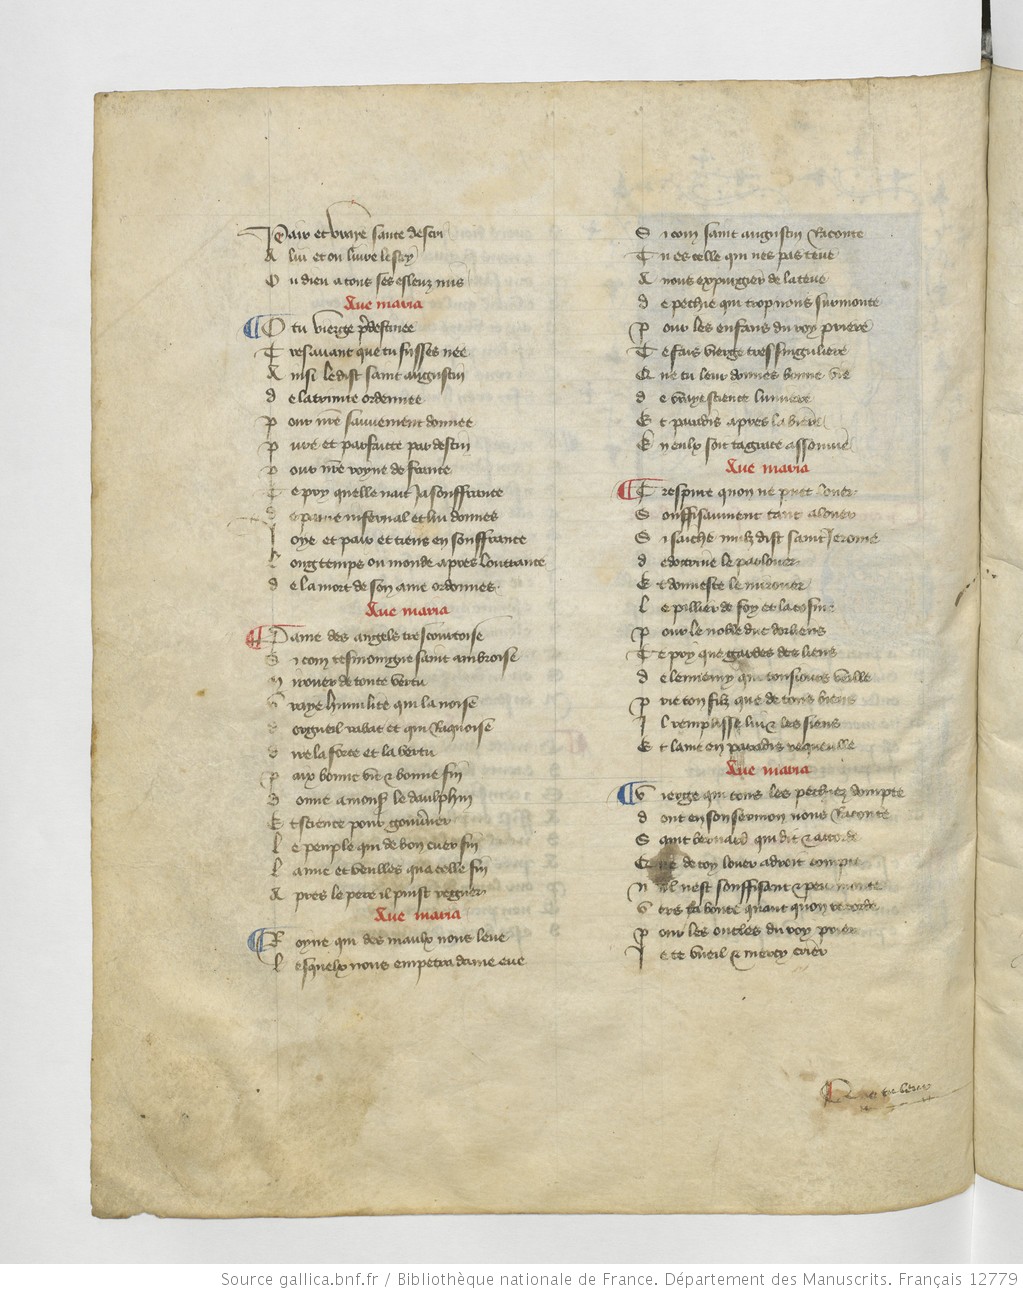 Paix et vraye sante descri
A lui et ou livre le scay
O u dieu a tous ses esleuz mis
Ave maria
O tu vierge p̄destinee
T resavant que tu fusses nee
A insi le dist saint augustin
d e la trinite ordennee
p our nr̄e sauvement donnee
p ure et parfaicte par destin
p our nr̄e royne de france
T e pry quelle nait ja souffrance
d e paine infernal et lui donnes
J oye et paix et tiens en souffrance
L ong temps ou monde apres loultrance
d e la mort de son ame ordonnes
Ave maria
D ame des angels trescourtoise
S i com tesmoingne saint ambroise
M irouer de toute vertu
V raye humilite qui la noise
d orgueil rabat et qui racquoise
d ire la force et la vertu
p aix bonne vie & bonne fin
D onne a mons̄ le daulphin
E t science pour gouv̄ner
L e peuple qui de bon cuer fin
L aime et vueilles qua celle fin
A pres le pere il puist regner
Ave maria
R oyne qui des maulx nous leve
L esquelx nous empetra dame eve
S i com saint augustin raconte
T u es celle qui nes pas teve
A nous expurgier de la leve
d e pechie qui trop nous surmonte
p our les enfans du roy priere
T e fais vierge tressinguliere
Q ue tu leur donnes bonne vie
d e vraye science lumiere
E t paradis apres la biere
E n eulx soit ta grace assouvie
Ave maria
T respure quon ne puet louer
S ouffisaument tant a louer
S i saiche nulz dist saint Jerome
d e doctrine le parlouer
E t donneste le mirouer
L e pillier de foy et la
p our le noble duc dorliens
T e pry que gardes des liens
d e lennemy qui tousiours veille
p rie ton filz que de tous biens
J l remplisse lui & les siens
E t lame en paradis recueille
Ave maria
V ierge qui tous les pechiez dompte
d ont en son sermon nous raconte
S aint bernard qui dit & accorde
Q ue de toy louer a droit compte
N ul nest souffisant & peu monte
V ers ta bonte quant quon recorde
p our les oncles du roy prier
J e te vueil & mercy crier
Source gallica.bnf.fr / Bibliothèque nationale de France. Département des Manuscrits. Français 12779